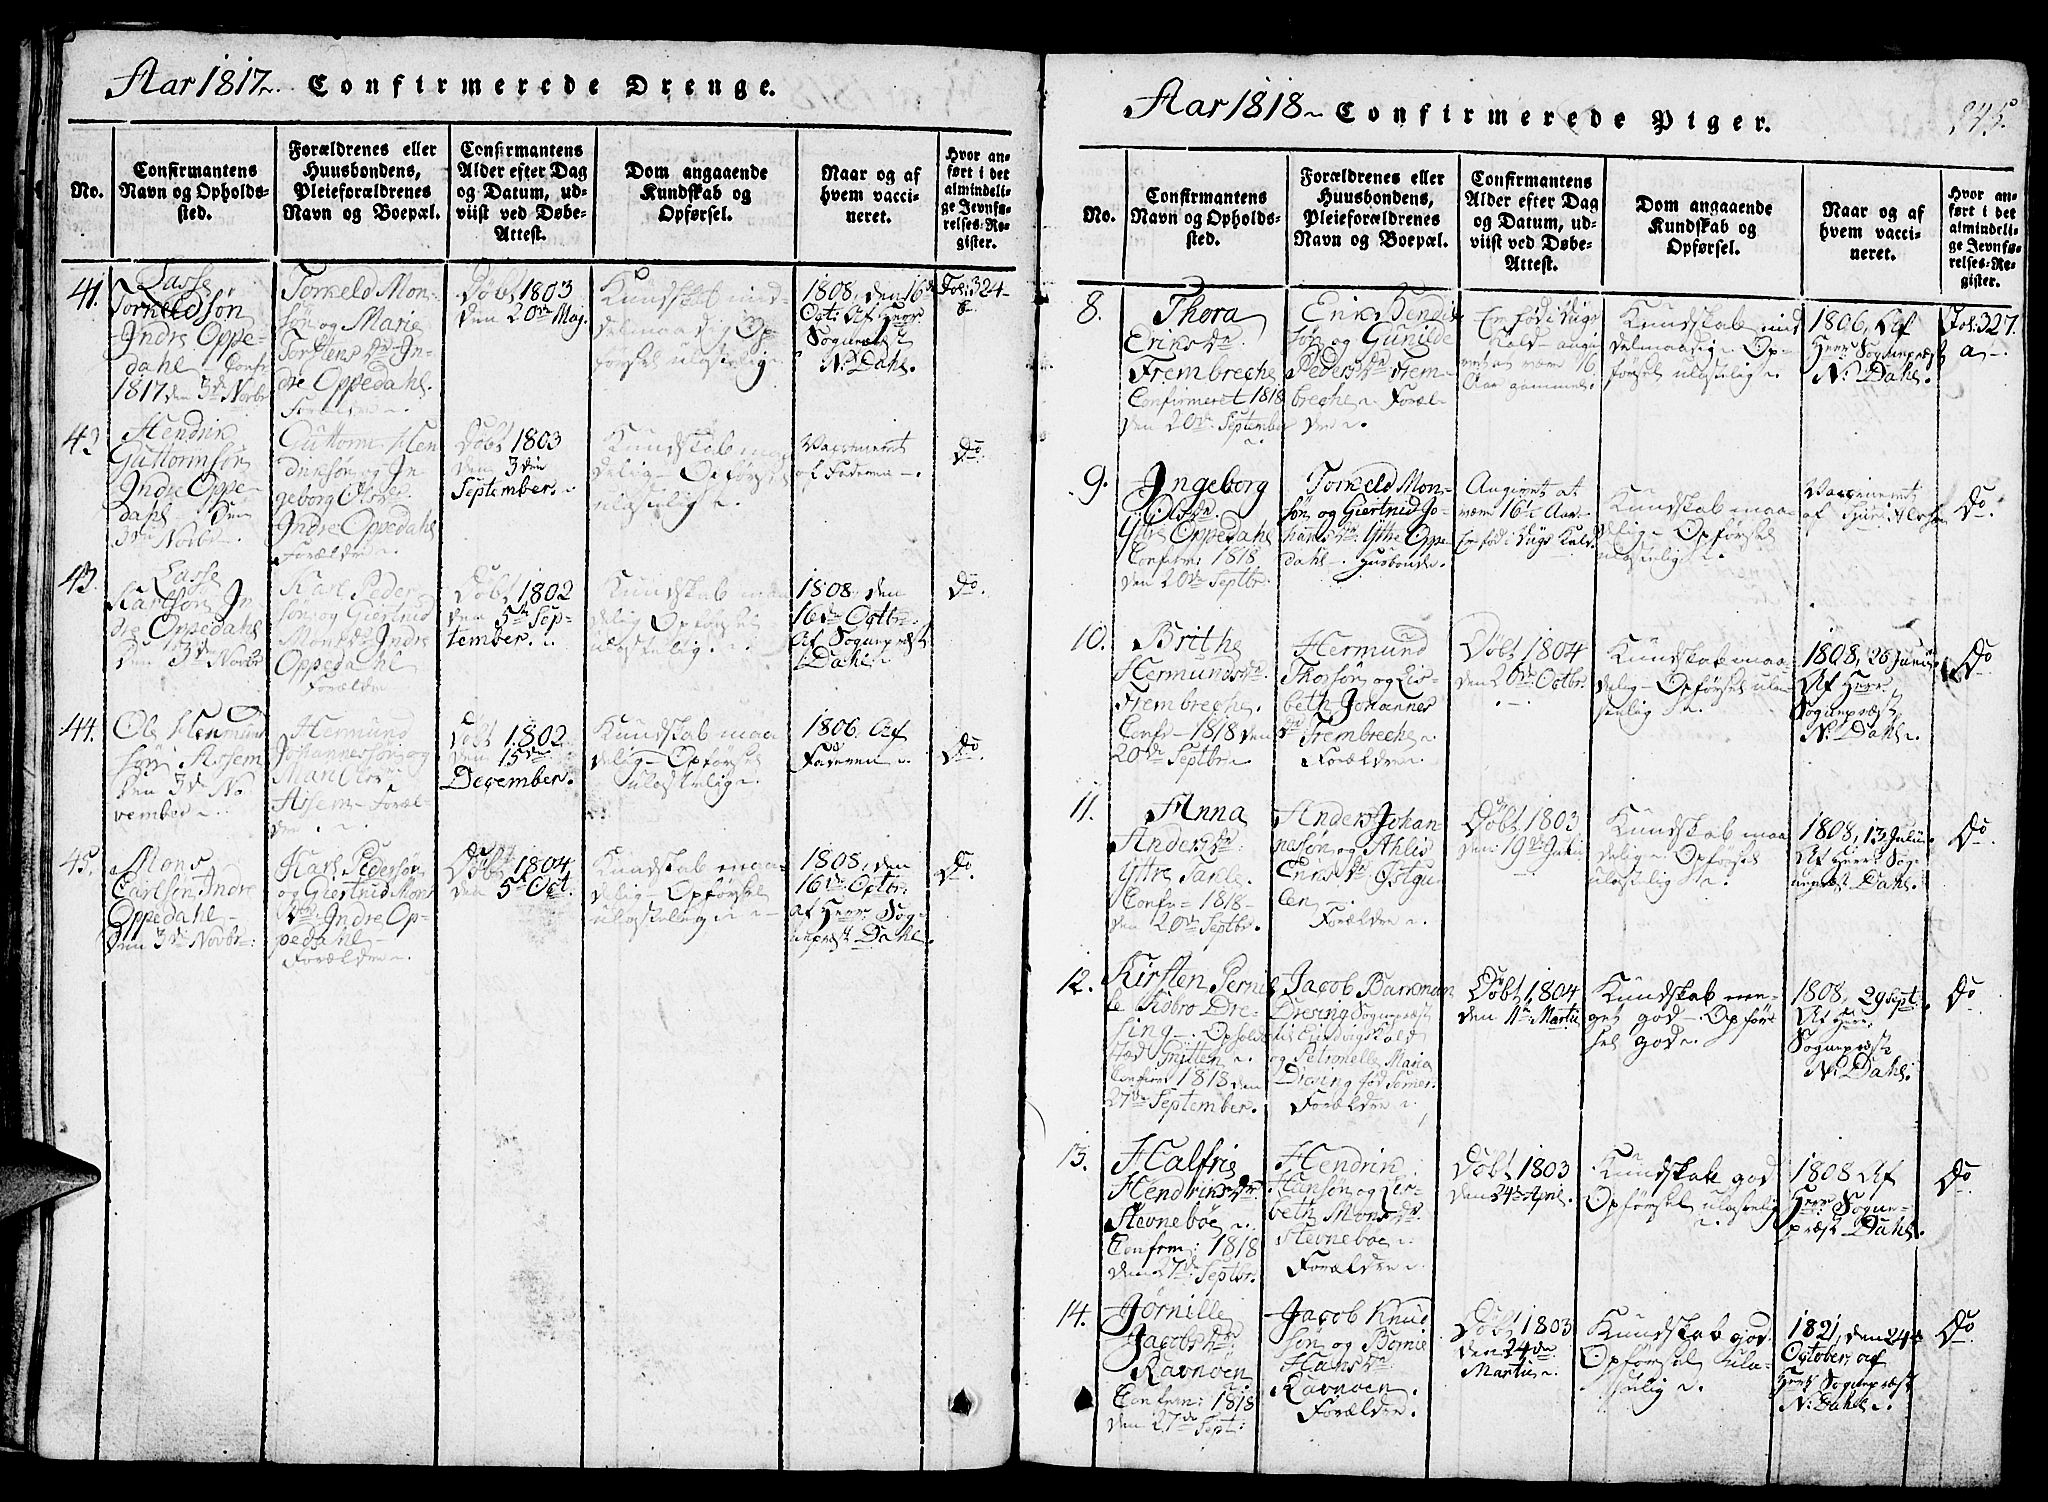 Aar 1817 Confirmerede Drenge.
No.
Confirmantens
Navn og Opholds-
sted.
Forældrenes eller
Huusbondens,
Pleieforældrenes
Navn og Boepæl.
Confirmantens
Alder efter Dag
og Datum, ud-
viist ved Døbe-
Attest.
Dom angaaende
Kundskab og
Opførsel.
Naar og af
hvem vacci-
neret.
Hvor an-
ført i det
almindeli-
ge Jevnfø-
relses-Re-
gister.
41.
Lasse
Torkeldsøn
Indre Oppe-
dahl Confr
1817 den 3de Novbr
Torkeld Mon-
søn og Marie
Torstens Dr In-
dre Oppedahl.
Forældre
Døbt 1803
den 20de Maj.
Kundskab mid-
delmaadig Op-
førsel ulastelig
1808, den 16de
Oct: Af Herr
Sognepræst
N: Dahl.
Fol: 324
b
Hendrik
Guttormsøn
Indre Oppe-
dahl den
3die Novbr
Guttorm Hen
driksøn og In-
geborg Olsdr
Indre Oppedahl
Forældre
Døbt 1803
den 3die
September.
Kundskab maa
delig Opførsel
ulastelig
Vaccineret
af Faderen
Do
Lasse
Karlsøn In-
dre Oppedahl
den 3die Novbr
Karl Peder-
søn og Giertrud
Mons Dr Indre
Oppedahl
Forældre
Døbt 1802
den 5te Sep-
tember.
Kundskab maa
delig Opførsel
ulastelig
1808. den
16de Octbr.
Af Sognepræst
Dahl
Do
44.
Ole Hermund
søn Assem
den 3die No
vember
Hermund
Johannessøn og
Mari Olsdr
Assem Foræl-
dre
Døbt 1802
den 15de
December.
Kundskab maa
delig Opførsel
ulastelig
1806. Af
Faderen
Do
45.
Mons
Carlsen Indre
Oppedahl
den 3die Novbr:
Karl Pedersøn
og Giertrud Mons
Dr. Indre Op-
pedahl
Forældre
Døbt 1804,
den 5te Oct:
Kundskab maa-
delig Opførsel
ulastelig
1808, den
16de Octbr.
af Herr Sog-
nepræst Dahl.
Do
Aar 1818 Confirmerede Piger.
345.
No.
Confirmantens
Navn og Opholds-
sted.
Forældrenes eller
Huusbondens,
Pleieforældrenes
Navn og Boepæl.
Confirmantens
Alder efter Dag
og Datum, ud-
viist ved Døbe-
Attest.
Dom angaaende
Kundskab og
Opførsel.
Naar og af
hvem vacci-
neret.
Hvor an-
ført i det
almindeli-
ge Jevnfø-
relses-Re-
gister.
8.
Thora
Eriks Dr
Frembreche
Confirmeret 1818
den 20de September
Erik Hendik
søn og Gunilde
Peders Dr Frem-
breche Foræl-
dre
Er fød i Evigs
Kald angi
vet at være 16
Aar gammel
Kundskab mid
delmaadig Op-
førsel ulastelig
1806, Af
Herr Sognepræst
N: Dahl.
Fol: 327.
a
9.
Ingeborg
Ols Dr
Ytre Oppedahl
Confirm: 1818
den 20de Septbr.
Torkeld Mon-
søn og Giertrud Jo-
hannes Dr: Ytre Oppe-
dahl. Husbonde.
Angivet at
være 16 Aar
Er fød i Kald
Kundskab maa-
delig Opførsel
ulastelig
Vaccineret
af
Do.
10.
Brithe
Hermunds Dr.
Frembreche
Confr 1818 den
20de Septbr
Hermund
Thorsøn og Lis-
beth Johannes
Dr Frembreche
Forældre
Døbt 1804
den 26de Octbr.
Kundskab maa
delig Opførsel ula-
stelig
1808, 26 Junii
Af Herr
Sognepræst
N: Dahl.
Do
11.
Anna
Anders Dr.
Ytre
Confr 1818
den 20de Septbr.
Anders Johan
nesøn og Ahlis
Eriks Dr Ostgu
len
Forældre
Døbt 1803
den 19de Julii
Kundskab maa
delig Opførsel
ulastelig
1808, 13 Julii
Af Herr Sog-
nepræst Dahl.
Do
12.
Kirsten Pernil
le Dre-
sing Opholds
sted Grütten
Confirm 1818 den
27de September.
Jacob Barkman
Dresing Sognepræst
til Eivindvigs Kald
og Petronelle Maria
Dresing fød Sømer.
Forældre
Døbt 1804
den 4de Martii
Kundskab me-
get god Opfør
sel god
1808, 29 Sept.
Af Herr
Sognepræst
N: Dahl.
Do
13.
Halfrie
Hendriks Dr
Stevneboe
Confrm: 1818
den 27de Septbr.
Hendrik
Hansøn og Lis-
beth Mons Dr
Stevneboe
Forældre
Døbt 1803
den 24de April.
Kundskab god
Opførsel ulastelig
1808 Af
Herr Sogne-
præst Dahl.
Do
14.
Jørnille
Jacobs Dr
Ravnøen
Confirm: 1818
den 27de Sept:
Jacob Knud
søn og Børnie
Hans Dr
Ravnøen.
Forældre.
Døbt 1803
den 24de
Martii
Kundskab god.
Opførsel ula-
stelig
1821, den 24de
October, af
Herr Sognepræst
N: Dahl
Do